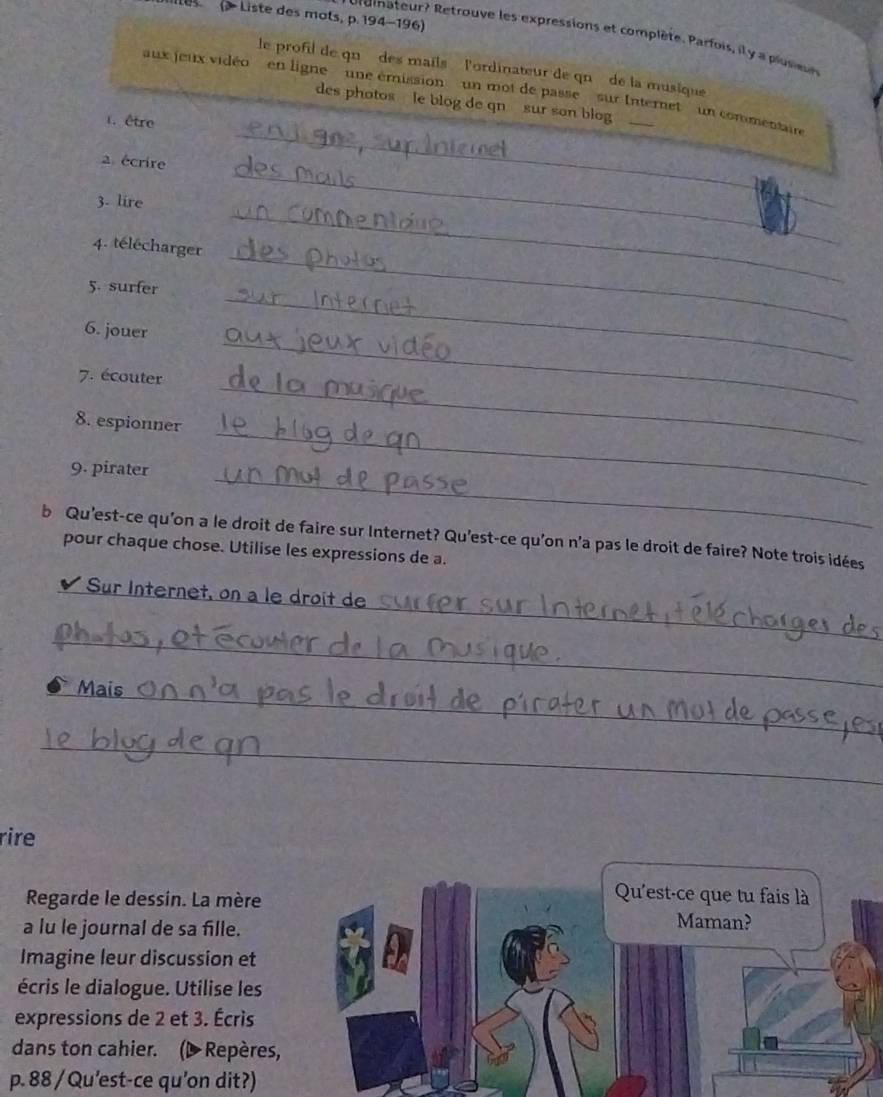 (▶ Liste des mots, p. 194–196)
ordinateur? Retrouve les expressions et complète. Parfois, il y a plusieurs
le profil de qn des mails l'ordinateur de qn de la musique
aux jeux vidéo en ligne une émission un mot de passe sur Internet un commentaire
des photos le blog de qn sur son blog
1. être en ligne, sur Internet
2. écrire des mails
3. lire un commentaire
4. télécharger des photos
5. surfer sur Internet
6. jouer aux jeux vidéo
7. écouter de la musique
8. espionner le blog de qn
9. pirater un mot de passe
b Qu'est-ce qu'on a le droit de faire sur Internet? Qu'est-ce qu'on n'a pas le droit de faire? Note trois idées
pour chaque chose. Utilise les expressions de a.
✔ Sur Internet, on a le droit de surfer sur Internet, télécharger des
photos, et écouter de la musique.
Mais on n'a pas le droit de pirater un mot de passe, es
le blog de qn
rire
Regarde le dessin. La mère
a lu le journal de sa fille.
Imagine leur discussion et
écris le dialogue. Utilise les
expressions de 2 et 3. Écris
dans ton cahier. (▶ Repères,
p. 88 / Qu'est-ce qu'on dit?)
Qu'est-ce que tu fais là
Maman?